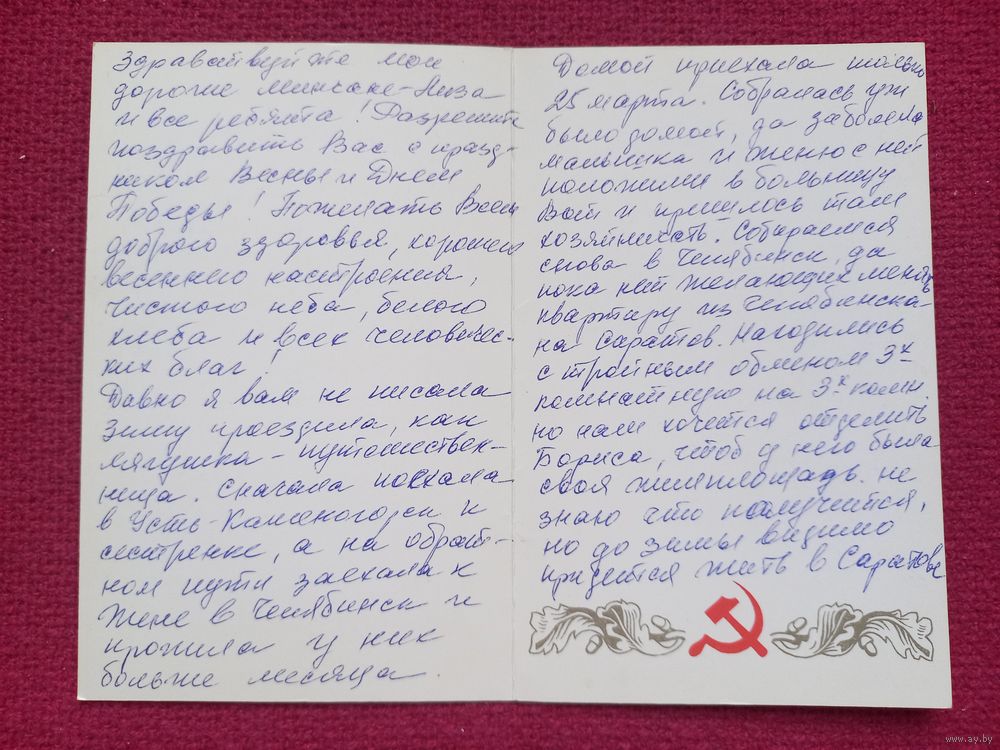 Здравствуйте мои
дорогие минчане - Лиза
и все ребята! Разрешите
поздравить Вас с празд-
ником Весны и Днем
Победы! Пожелать Всем
доброго здоровья, хорошего
весеннего настроения,
чистого неба, белого
хлеба и всех человечес-
ких благ!
Давно я вам не писала
зиму проездила, как
лягушка-путешествен-
ница. Сначала поехала
в Усть-Каменогорск к
сестренке, а на обрат-
ном пути заехала к
Жене в Челябинск и
прожила у них
больше месяца.
Домой приехала только
25 марта. Собралась уж
было домой, да заболела
мальчика и Женю с ней
положили в больницу
Вот и пришлось там
хозяйничать. Собираемся
снова в Челябинск, да
пока нет желающих менять
квартиру из Челябинска
на Саратов. Находились
с тройным обменом 3х
комнатную на 3х комн.
но нам хочется отделить
Бориса, чтоб у него была
своя жилплощадь. не
знаю что получится,
но до зимы видимо
придется жить в Саратове
www.ay.by